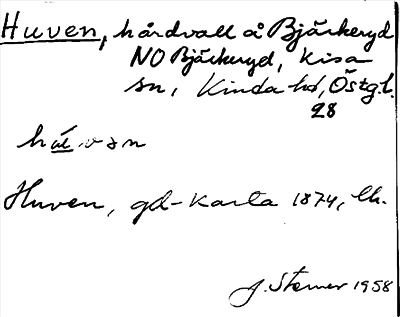 Huven, hårdvall å Bjärkeryd
NO Bjärkeryd, Kisa
sn, Kinda hd, Östgl.
28
Huven, gd-karta 1874, lh.
J. Sterner 1958